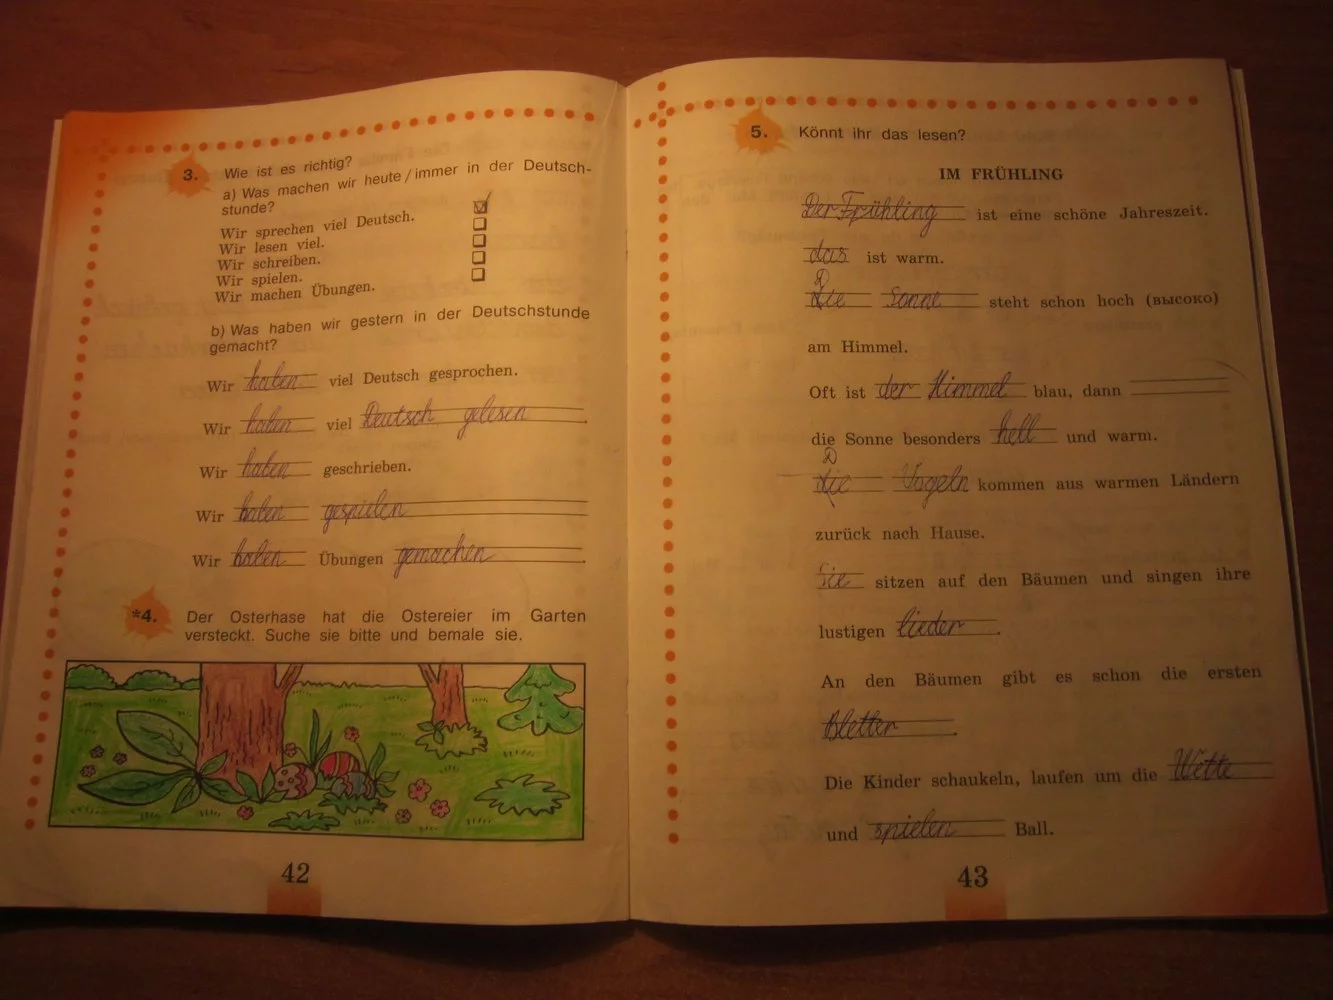 3. Wie ist es richtig?
a) Was machen wir heute / immer in der Deutsch-
stunde?
Wir sprechen viel Deutsch.
Wir lesen viel.
Wir schreiben.
Wir spielen.
Wir machen Übungen.
b) Was haben wir gestern in der Deutschstunde
gemacht?
Wir haben viel Deutsch gesprochen.
Wir haben viel Deutsch gelesen.
Wir haben geschrieben.
Wir haben gespielen
Wir haben Übungen gemachen.
*4. Der Osterhase hat die Ostereier im Garten
versteckt. Suche sie bitte und bemale sie.
42
5. Könnt ihr das lesen?
IM FRÜHLING
Der Frühling ist eine schöne Jahreszeit.
das ist warm.
Die Sonne steht schon hoch (высоко)
am Himmel.
Oft ist der Himmel blau, dann
die Sonne besonders hell und warm.
Die Vogeln kommen aus warmen Ländern
zurück nach Hause.
Sie sitzen auf den Bäumen und singen ihre
lustigen lieder.
An den Bäumen gibt es schon die ersten
Bletter.
Die Kinder schaukeln, laufen um die Wette
und spielen Ball.
43